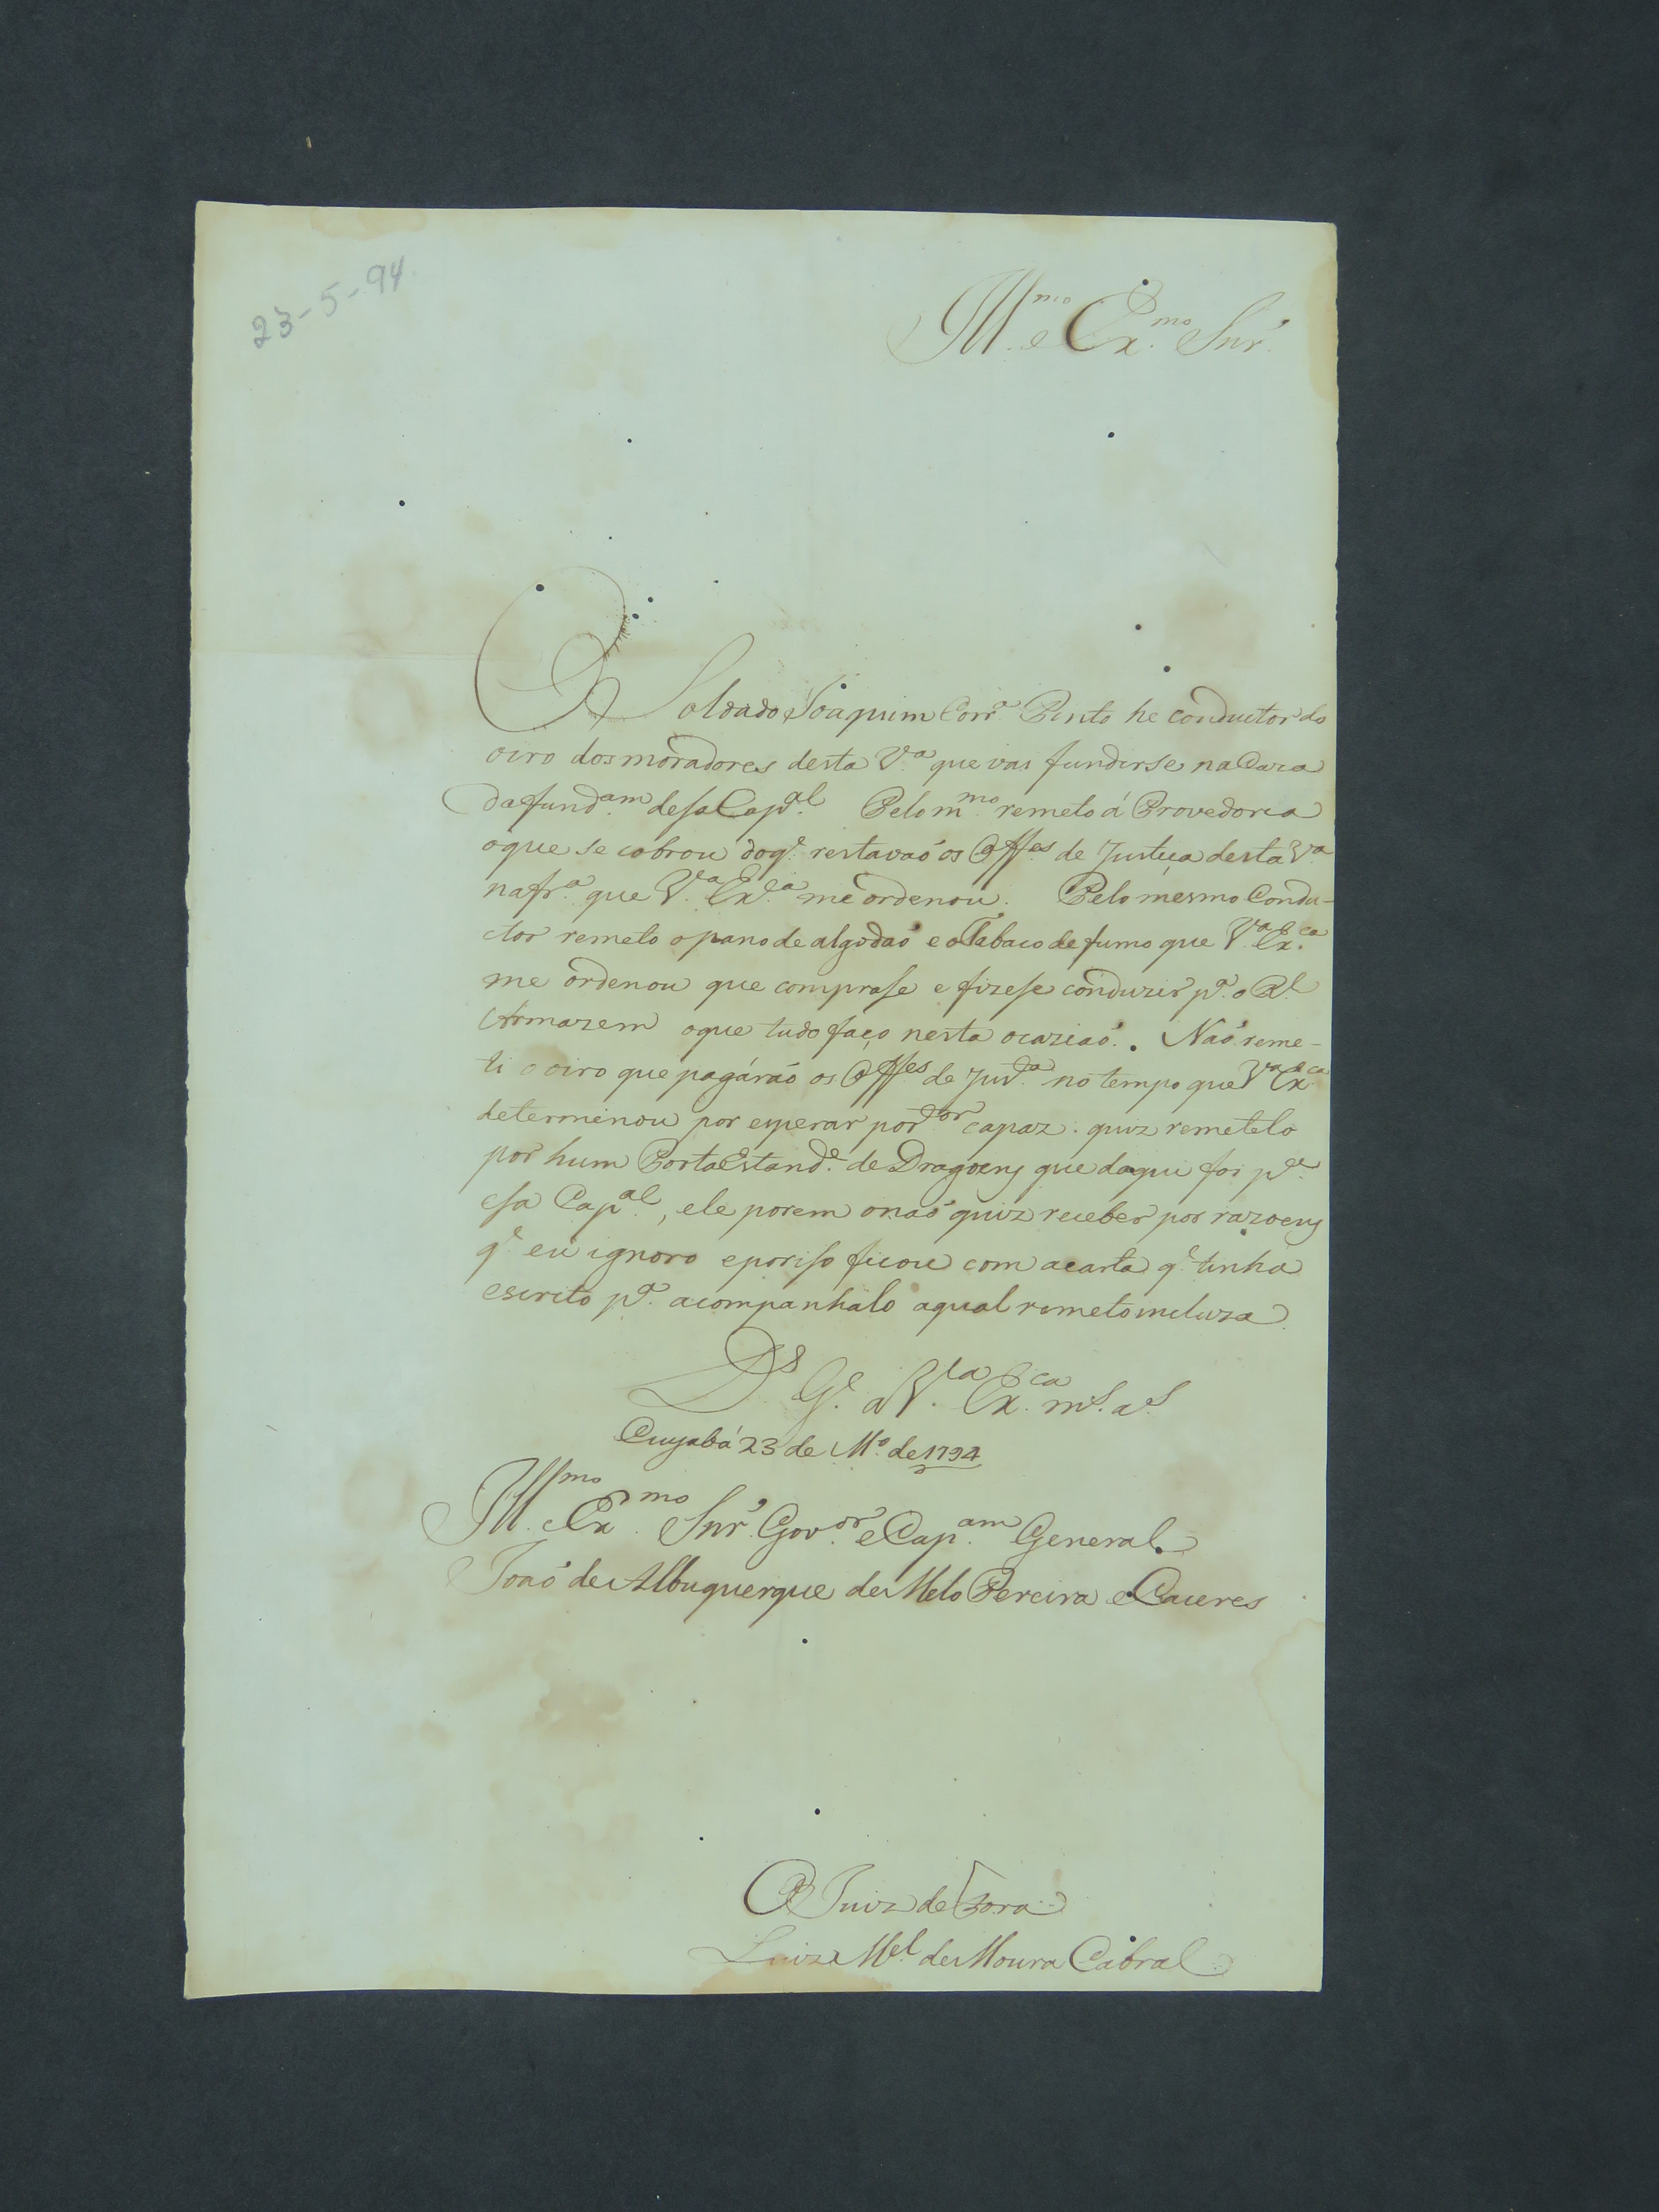 23-5-94
Ill.mo e Ex.mo Snr.
O Soldado Joaquim Corr.a Pinto he conductor do
oiro dos moradores desta V.a que vai fundirse na Caza
da fund.am desa Cap.al Pelo m.mo remeto á Provedoria
oque se cobrou doq.e restavaõ os Off.es de Justiça desta V.a
na fr.a que V.a Ex.a me ordenou. Pelo mesmo Condu-
ctor remeto o pano de algodaõ e o Tabaco de fumo que V.a Ex.ca
me ordenou que comprase e fizese conduzir p.a o R.l
Armazem oque tudo faço nesta ocaziaõ. Naõ reme-
ti o oiro que pagáraõ os Off.es de Jus.a no tempo que V.a Ex.ca
determinou por esperar por.dor capaz. quiz remetelo
por hum Porta Estand.e de Dragoens que daqui foi p.a
esa Cap.al, ele porem o naõ quiz receber por razoens
q.e eu ignoro e poriso ficou com a carta q.e tinha
escrito p.a acompanhalo aqual remeto incluza
D.s G.e a V.a Ex.ca m.s a.s
Cuyabá 23 de M.o de 1794
Ill.mo e Ex.mo Snr. Gov.or e Cap.am General
Joaõ de Albuquerque de Melo Pereira e Caceres
O Juiz de Fora
Luiz M.el de Moura Cabral